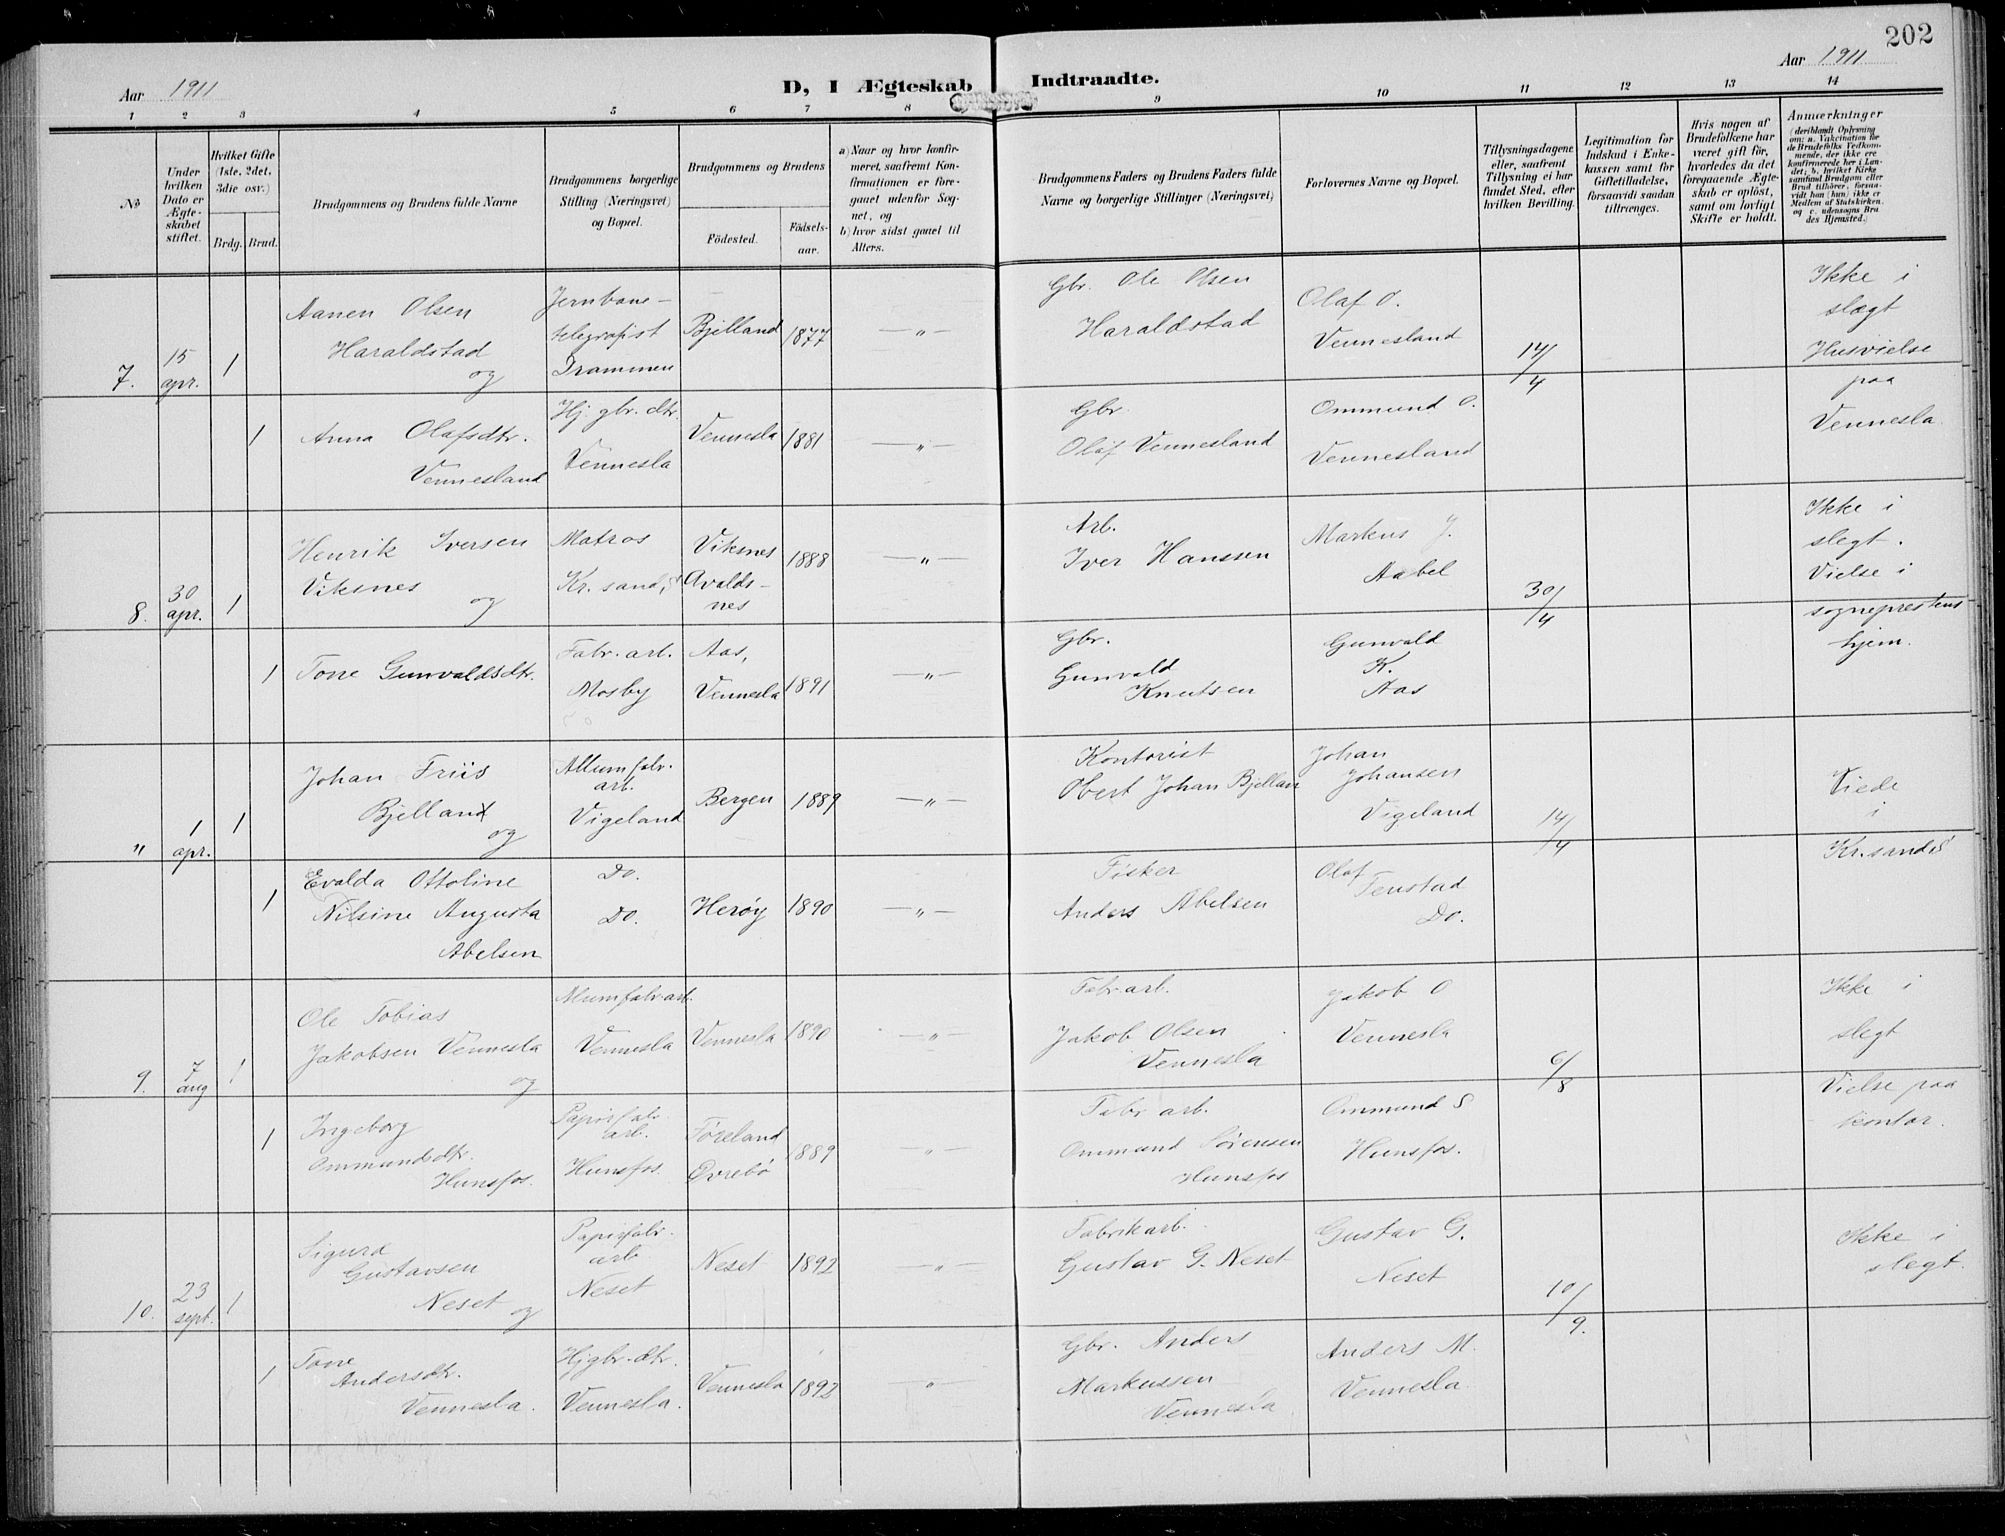 202
Aar 1911
D, I Ægteskab Indtraadte.
Aar 1911
1 2 3 4 5 6 7 8 9 10 11 12 13 14
No
Under hvilken Dato er Ægteskabet stiftet.
Hvilket Gifte (1ste, 2det, 3die osv.)
Brdg. Brud.
Brudgommens og Brudens fulde Navne
Brudgommens borgerlige Stilling (Næringsvei) og Bopæl.
Brudgommens og Brudens
Födested. Födselsaar.
a) Naar og hvor konfirmeret, saafremt Konfirmationen er foregaaet udenfor Sognet, og
b) hvor sidst gaaet til Alters.
Brudgommens Faders og Brudens Faders fulde Navne og borgerlige Stillinger (Næringsvei)
Forlovernes Navne og Bopæl.
Tillysningsdagene eller, saafremt Tillysning ei har fundet Sted, efter hvilken Bevilling.
Legitimation for Indskud i Enkekassen samt for Giftetilladelse, forsaavidt saadan tiltrænges.
Hvis nogen af Brudefolkene har været gift før, hvorledes da det foregaaende Ægteskab er oplöst, samt om lovligt Skifte er holdt.
Anmærkninger
(deriblandt Oplysning om: a. Vakcination for de Brudefolks Vedkommende, der ikke ere konfirmerede her i Landet; b. hvilket Kirkesamfund Brudgom eller Brud tilhörer, forsaavidt han (hun) ikke er Medlem af Statskirken, og c. udensogns Brudes Hjemsted.)
7. 15 apr. 1 Aanen Olsen Haraldstad og
Jernbanetelegrafist Drammen
Bjelland 1877 — " —
Gbr. Ole Olsen Haraldstad
Olaf O. Vennesland
14/4
Ikke i slægt Husvielse paa Vennesla
1 Anna Olafsdtr. Vennesland
Hj. gbr. dtr. Vennesla
Vennesla 1881 — " —
Gbr. Olaf Vennesland
Ommund O. Vennesland
8. 30 apr. 1 Henrik Iversen Viksnes og
Matros Kr.sand,
Viksnes Avaldsnes 1888 — " —
Arb. Iver Hanssen
Markus J. Aabel
30/4
Ikke i slegt. Vielse i sogneprestens hjem.
1 Tone Gunvaldsdtr.
Fabr. arb. Mosby
Aas, Vennesla 1891 — " —
Gbr. Gunvald Knutsen
Gunvald K. Aas
" 1 apr. 1 Johan Friis Bjelland og
Allum fabr. arb. Vigeland
Bergen 1889 — " —
Kontorist Obert Johan Bjellan
Johan Johansen Vigeland
14/4
Viede i Kr.sand
1 Evalda Ottoline Nilsine Augusta Abelsen
Do. Do.
Herøy 1890 — " —
Fisker Anders Abelsen
Olaf Tenstad Do.
9. 7 aug 1 Ole Tobias Jakobsen Vennesla og
Alumfabr. arb. Vennesla
Vennesla 1890 — " —
Fabr. arb. Jakob Olsen Vennesla
Jakob O Vennesla
6/8
Ikke i slegt Vielse paa kontor.
1 Ingeborg Ommundsdtr. Hunsfos.
Papirfabr. arb. Hunsfos.
Føreland Øvrebö 1889 — " —
Fabr arb. Ommund Sørensen Hunsfos
Ommund S Hunsfos.
10. 23 sept. 1 Sigurd Gustavsen Neset og
Papirfabr. arb Neset
Neset 1892 — " —
Fabrik arb. Gustav G. Neset
Gustav G. Neset
10/9.
Ikke i slegt.
1 Tone Andersdtr. Vennesla.
Hj gbr. dtr. Vennesla.
Vennesla 1892 "
Gbr. Anders Markussen Vennesla
Anders M. Vennesla